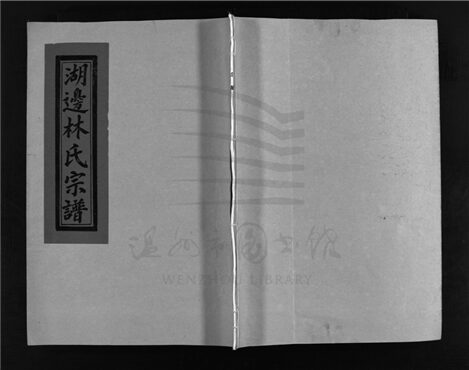 湖邊林氏宗譜
温州市图书馆
WENZHOU LIBRARY